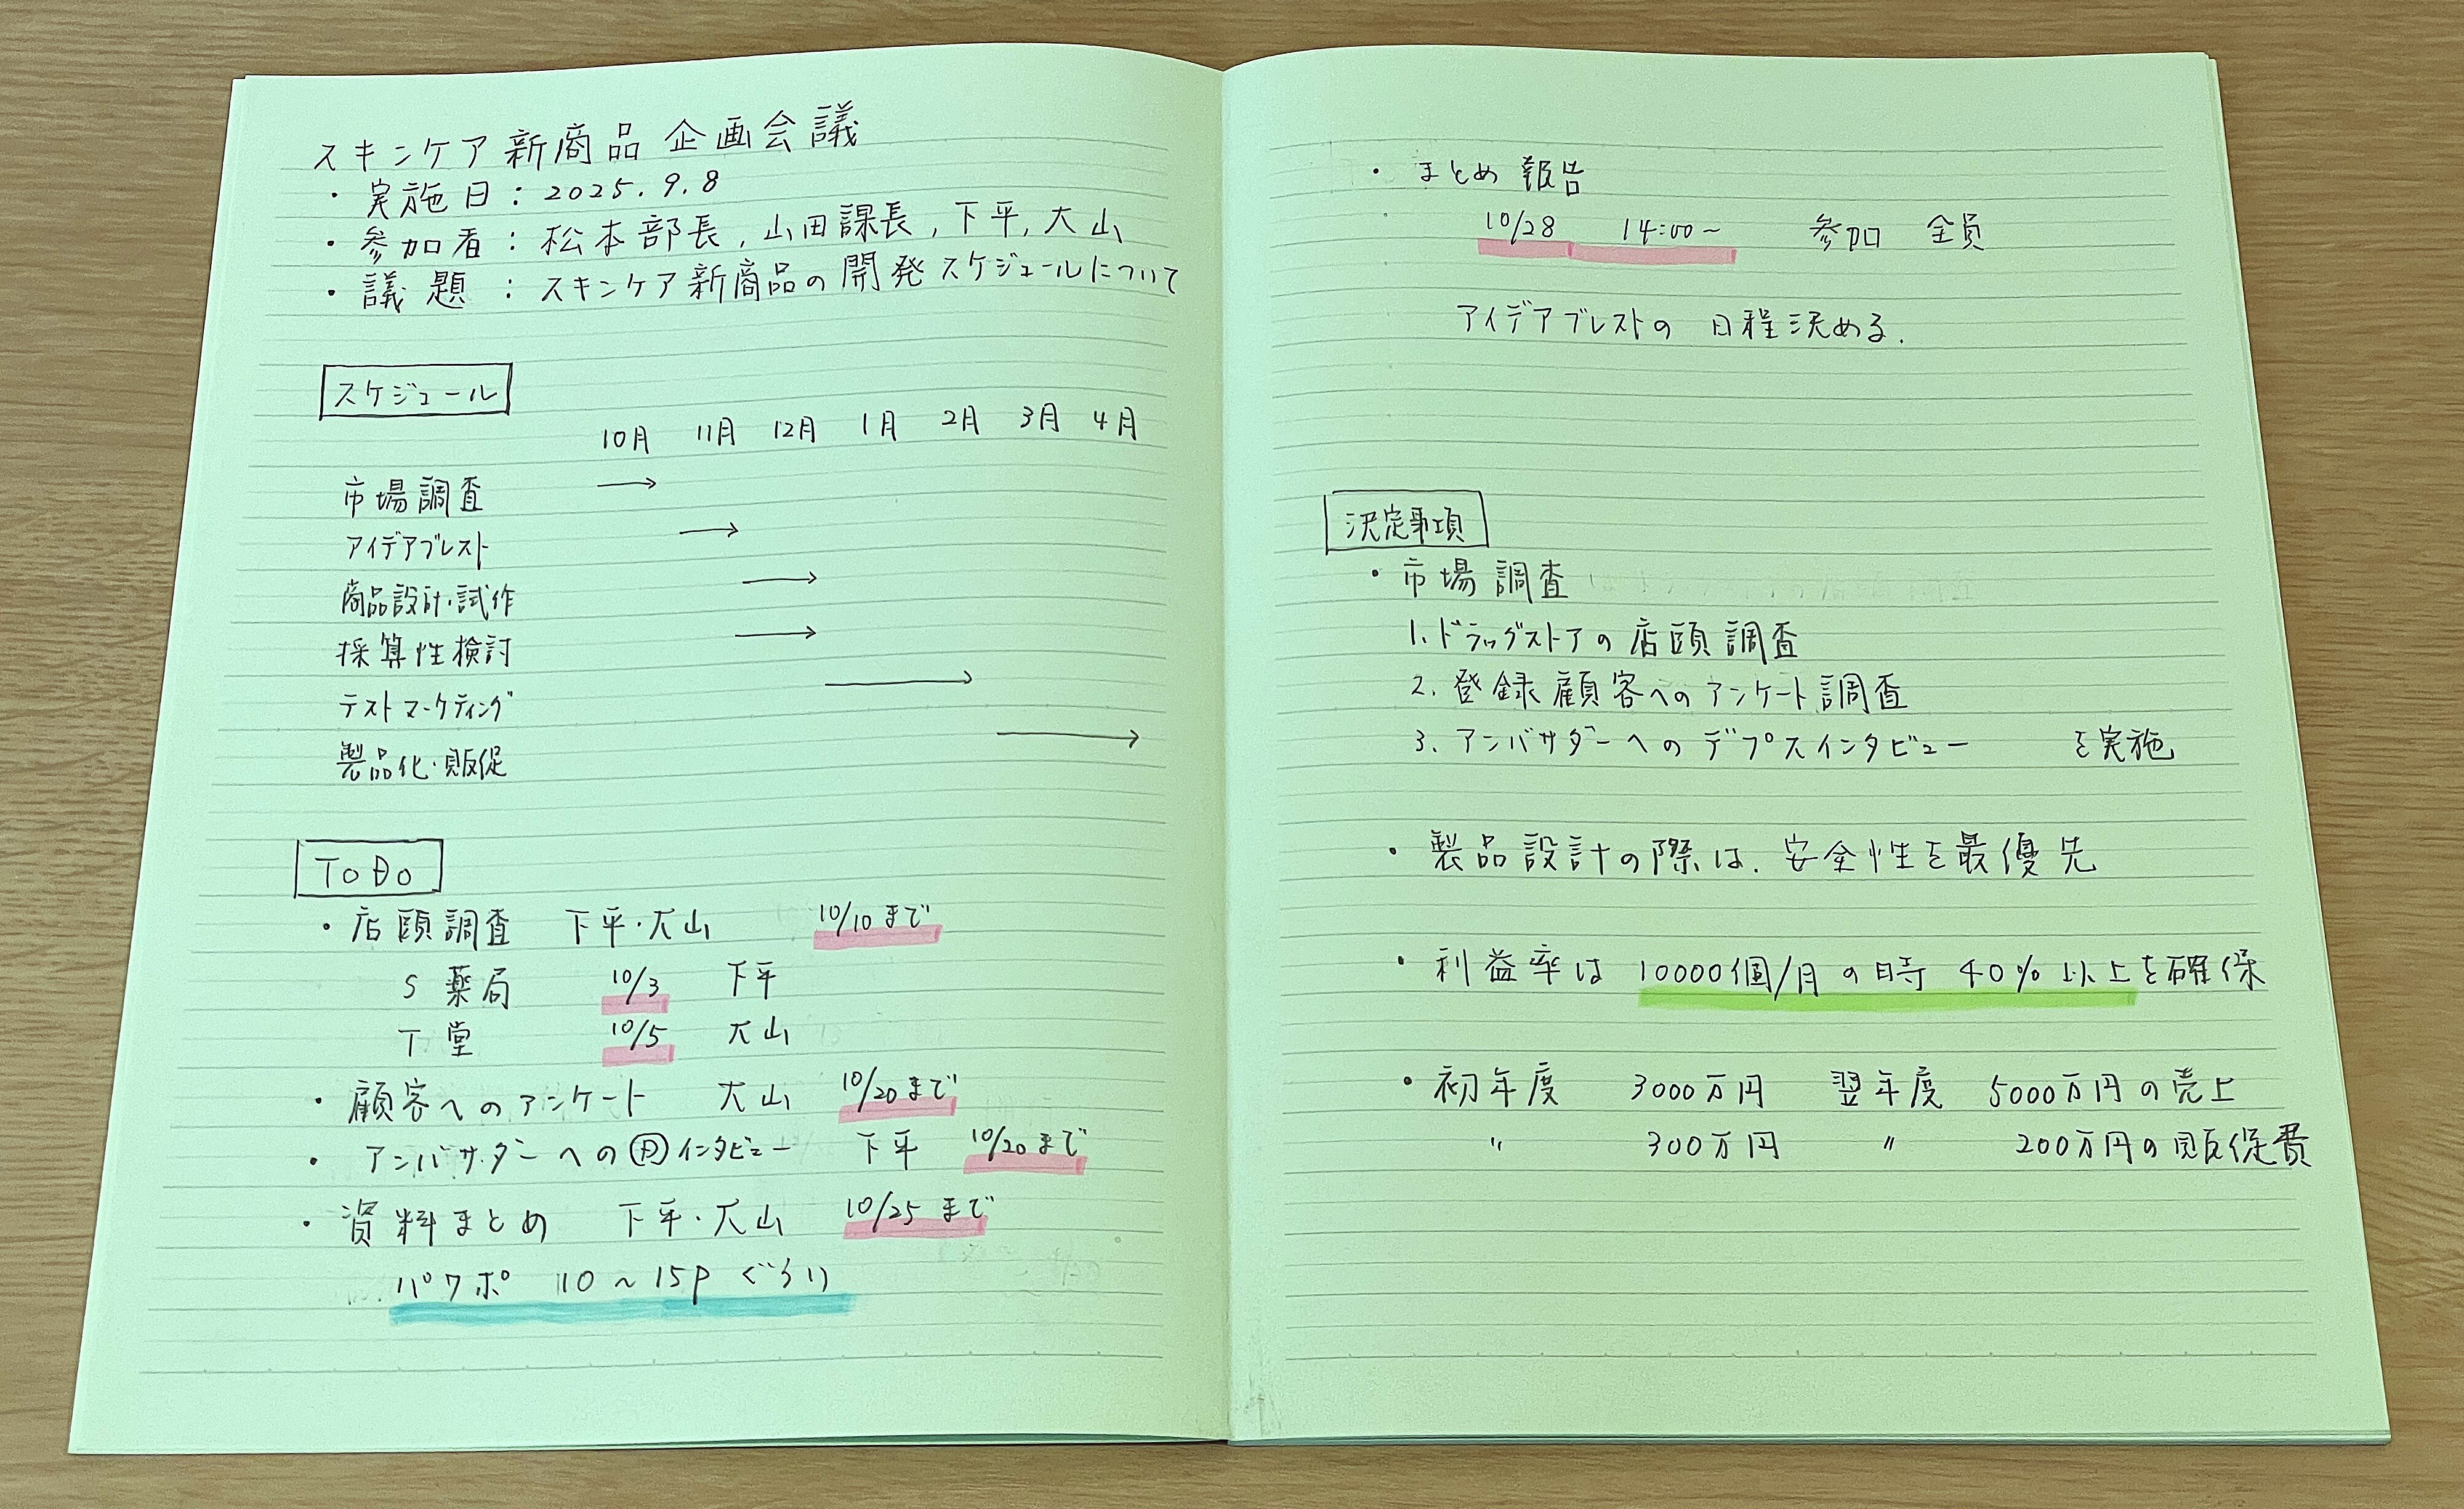 スキンケア新商品企画会議
・実施日：2025.9.8
・参加者：松本部長,山田課長,下平,大山
・議題：スキンケア新商品の開発スケジュールについて
スケジュール
10月 11月 12月 1月 2月 3月 4月
市場調査 →
アイデアブレスト →
商品設計・試作 →
採算性検討 →
テストマーケティング →
製品化・販促 →
ToDo
・店頭調査 下平・大山 10/10まで
S薬局 10/3 下平
T堂 10/5 大山
・顧客へのアンケート 大山 10/20まで
・アンバサダーへのⒹインタビュー 下平 10/20まで
・資料まとめ 下平・大山 10/25まで
パワポ 10～15P ぐらい
・まとめ報告
10/28 14:00～ 参加 全員
アイデアブレストの日程決める.
決定事項
・市場調査
1.ドラッグストアの店頭調査
2.登録顧客へのアンケート調査
3.アンバサダーへのデプスインタビュー を実施
・製品設計の際は、安全性を最優先
・利益率は10000個/月の時 40%以上を確保
・初年度 3000万円 翌年度 5000万円の売上
〃 300万円 〃 200万円の販促費